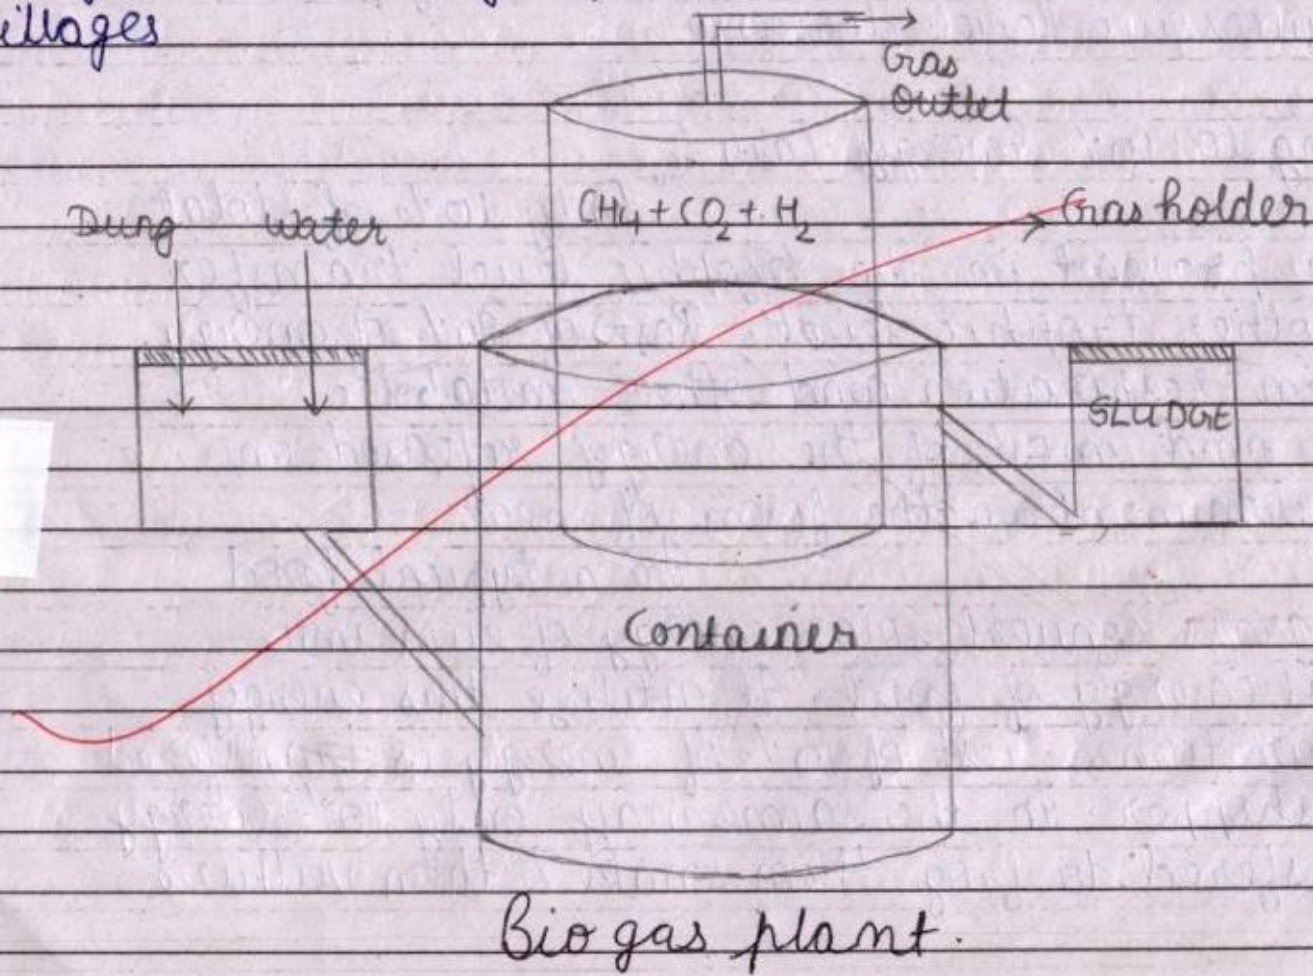 illages
Gas
Outlet
Dung Water
CH4 + CO2 + H2
Gas holder
SLUDGE
Container
Bio gas plant.